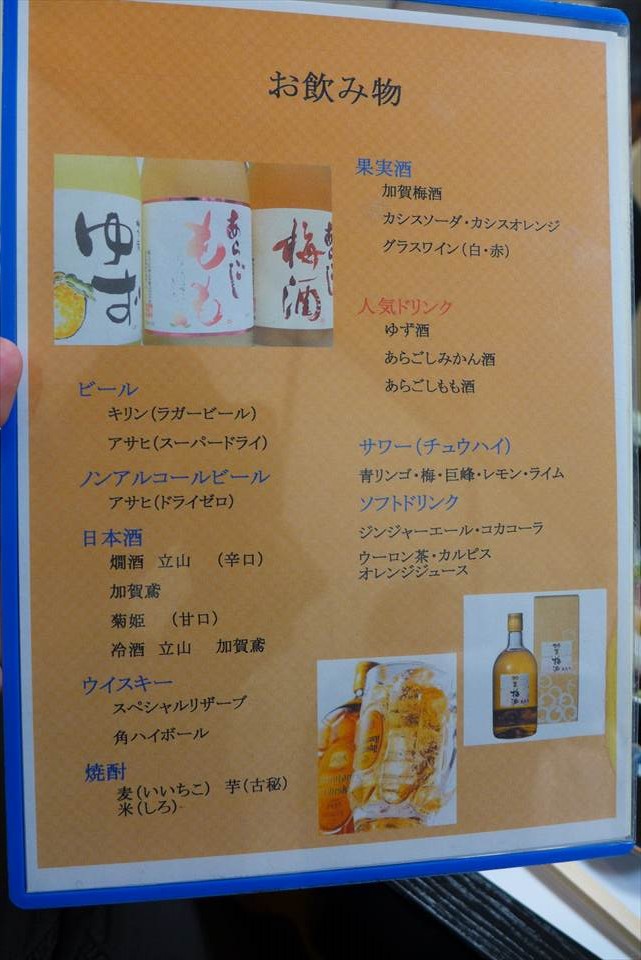 お飲み物
ゆず
あらごし
もも
あらごし
梅酒
ビール
キリン(ラガービール)
アサヒ(スーパードライ)
ノンアルコールビール
アサヒ(ドライゼロ)
日本酒
燗酒 立山 (辛口)
加賀鳶
菊姫 (甘口)
冷酒 立山 加賀鳶
ウイスキー
スペシャルリザーブ
角ハイボール
焼酎
麦(いいちこ) 芋(古秘)
米(しろ)
果実酒
加賀梅酒
カシスソーダ・カシスオレンジ
グラスワイン(白・赤)
人気ドリンク
ゆず酒
あらごしみかん酒
あらごしもも酒
サワー(チュウハイ)
青リンゴ・梅・巨峰・レモン・ライム
ソフトドリンク
ジンジャーエール・コカコーラ
ウーロン茶・カルピス
オレンジジュース
加賀梅酒